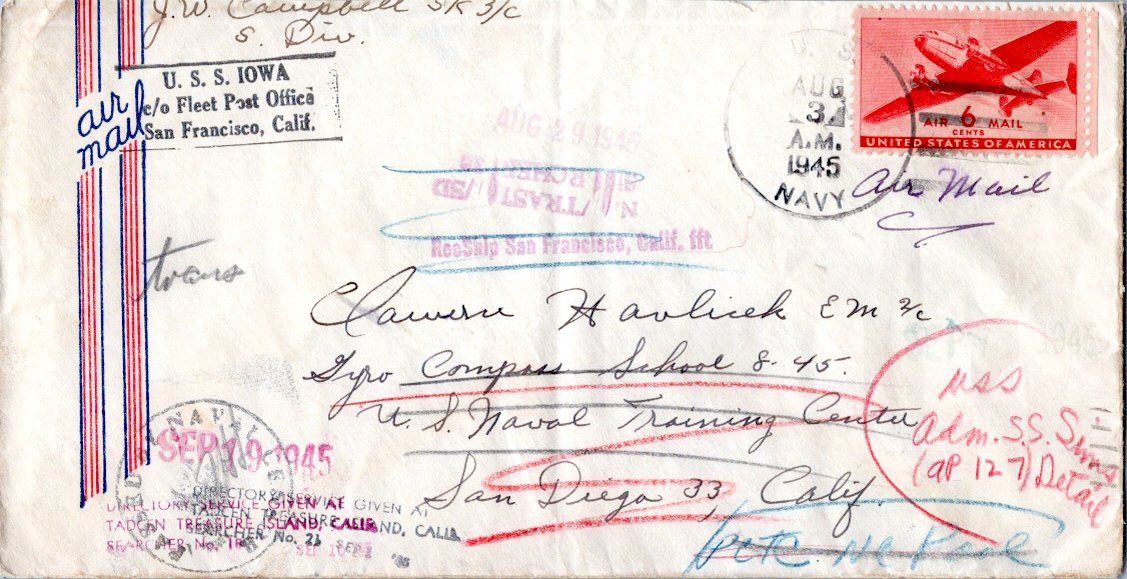 J. W. Campbell SK 3/c
S. Div.
U. S. S. IOWA
c/o Fleet Post Office
San Francisco, Calif.
air
mail
U. S.
AUG
3
A.M.
1945
NAVY
AIR 6 MAIL
CENTS
UNITED STATES OF AMERICA
Air Mail
AUG 29 1945
RecSaip San Francisco, Calif. fft
trans
Havlicek EM 2/c
Gyro Compass School 8-45.
U. S. Naval Training Center
San Diego 33, Calif.
USS
Adm. S.S. Sims
(AP 127) Detail
NAVY
SEP 19 1945
DIRECTORY SERVICE GIVEN AT
TADCEN TREASURE ISLAND, CALIF.
SEARCHER No. 18
DIRECTORY SERVICE GIVEN AT
TADCEN TREASURE ISLAND, CALIF.
SEARCHER No. 21